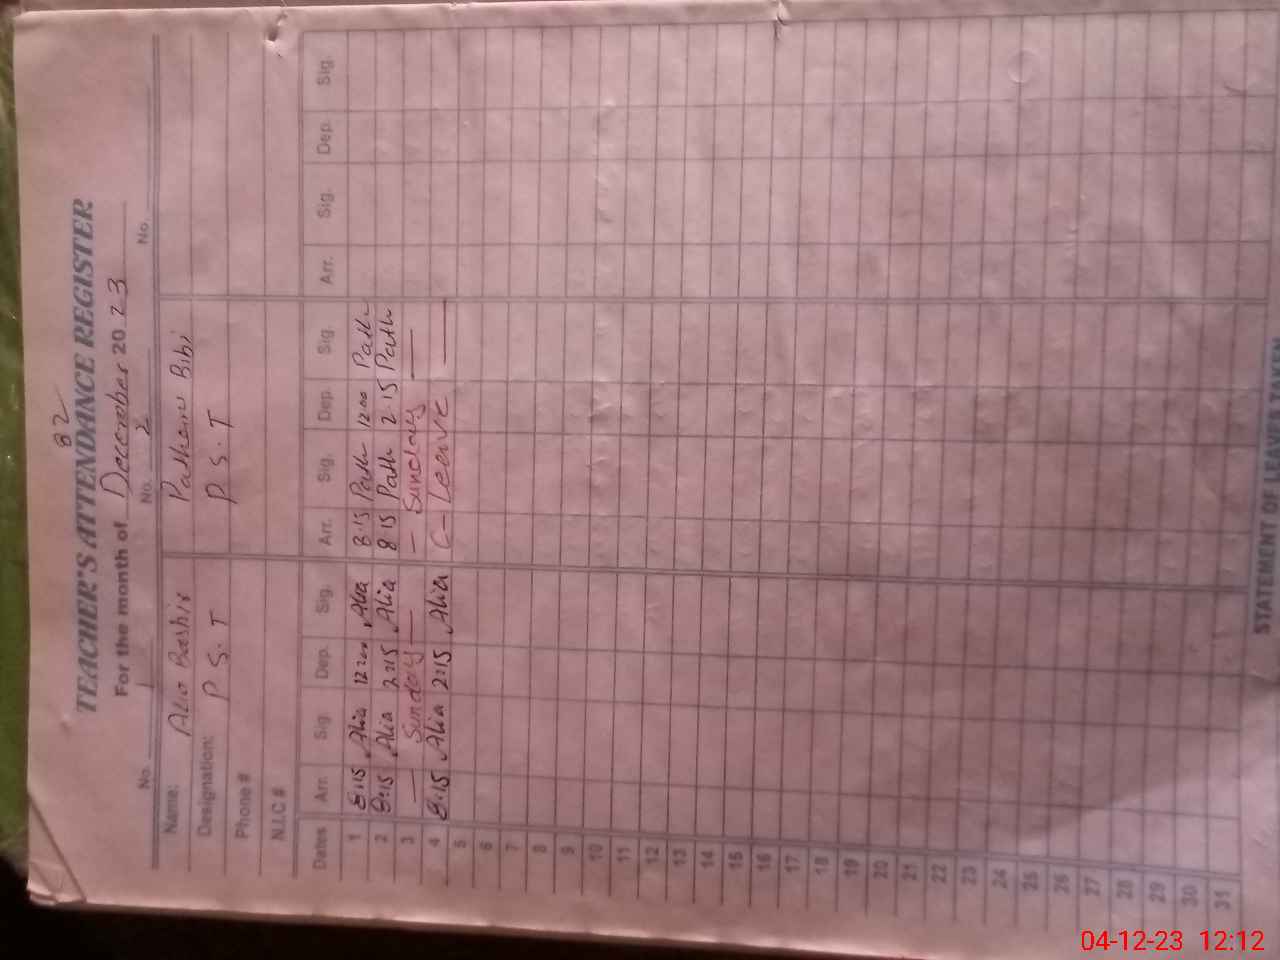 82
TEACHER'S ATTENDANCE REGISTER
For the month of December 2023
No. 1 No. 2 No.
Name: Alia Bashir Pathani Bibi
Designation: P S. T P. S. T
Phone #
N.I.C #
Dates Arr. Sig. Dep. Sig. Arr. Sig. Dep. Sig. Arr. Sig. Dep. Sig.
1 8:15 Alia 12:00 Alia 8:15 Path 12:00 Path
2 8:15 Alia 2:15 Alia 8:15 Path 2:15 Path
3 — Sunday — — Sunday —
4 8:15 Alia 2:15 Alia C- Leave —
5
6
7
8
9
10
11
12
13
14
15
16
17
18
19
20
21
22
23
24
25
26
27
28
29
30
31
STATEMENT OF LEAVES TAKEN
04-12-23 12:12